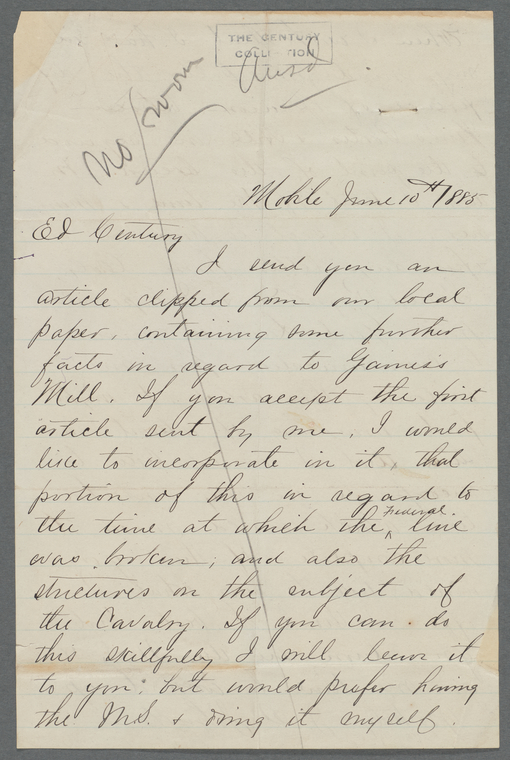 THE CENTURY
COLLECTION
Ansd
No room
Mobile June 10th/1885
Ed Century
I send you an
article clipped from our local
paper, containing some further
facts in regard to Gaines's
Mill. If you accept the first
article sent by me, I would
like to incorporate in it, that
portion of this in regard to
the time at which the Federal line
was broken; and also the
strictures on the subject of
the Cavalry. If you can do
this skillfully I will leave it
to you; but would prefer having
the M.S. & doing it myself.